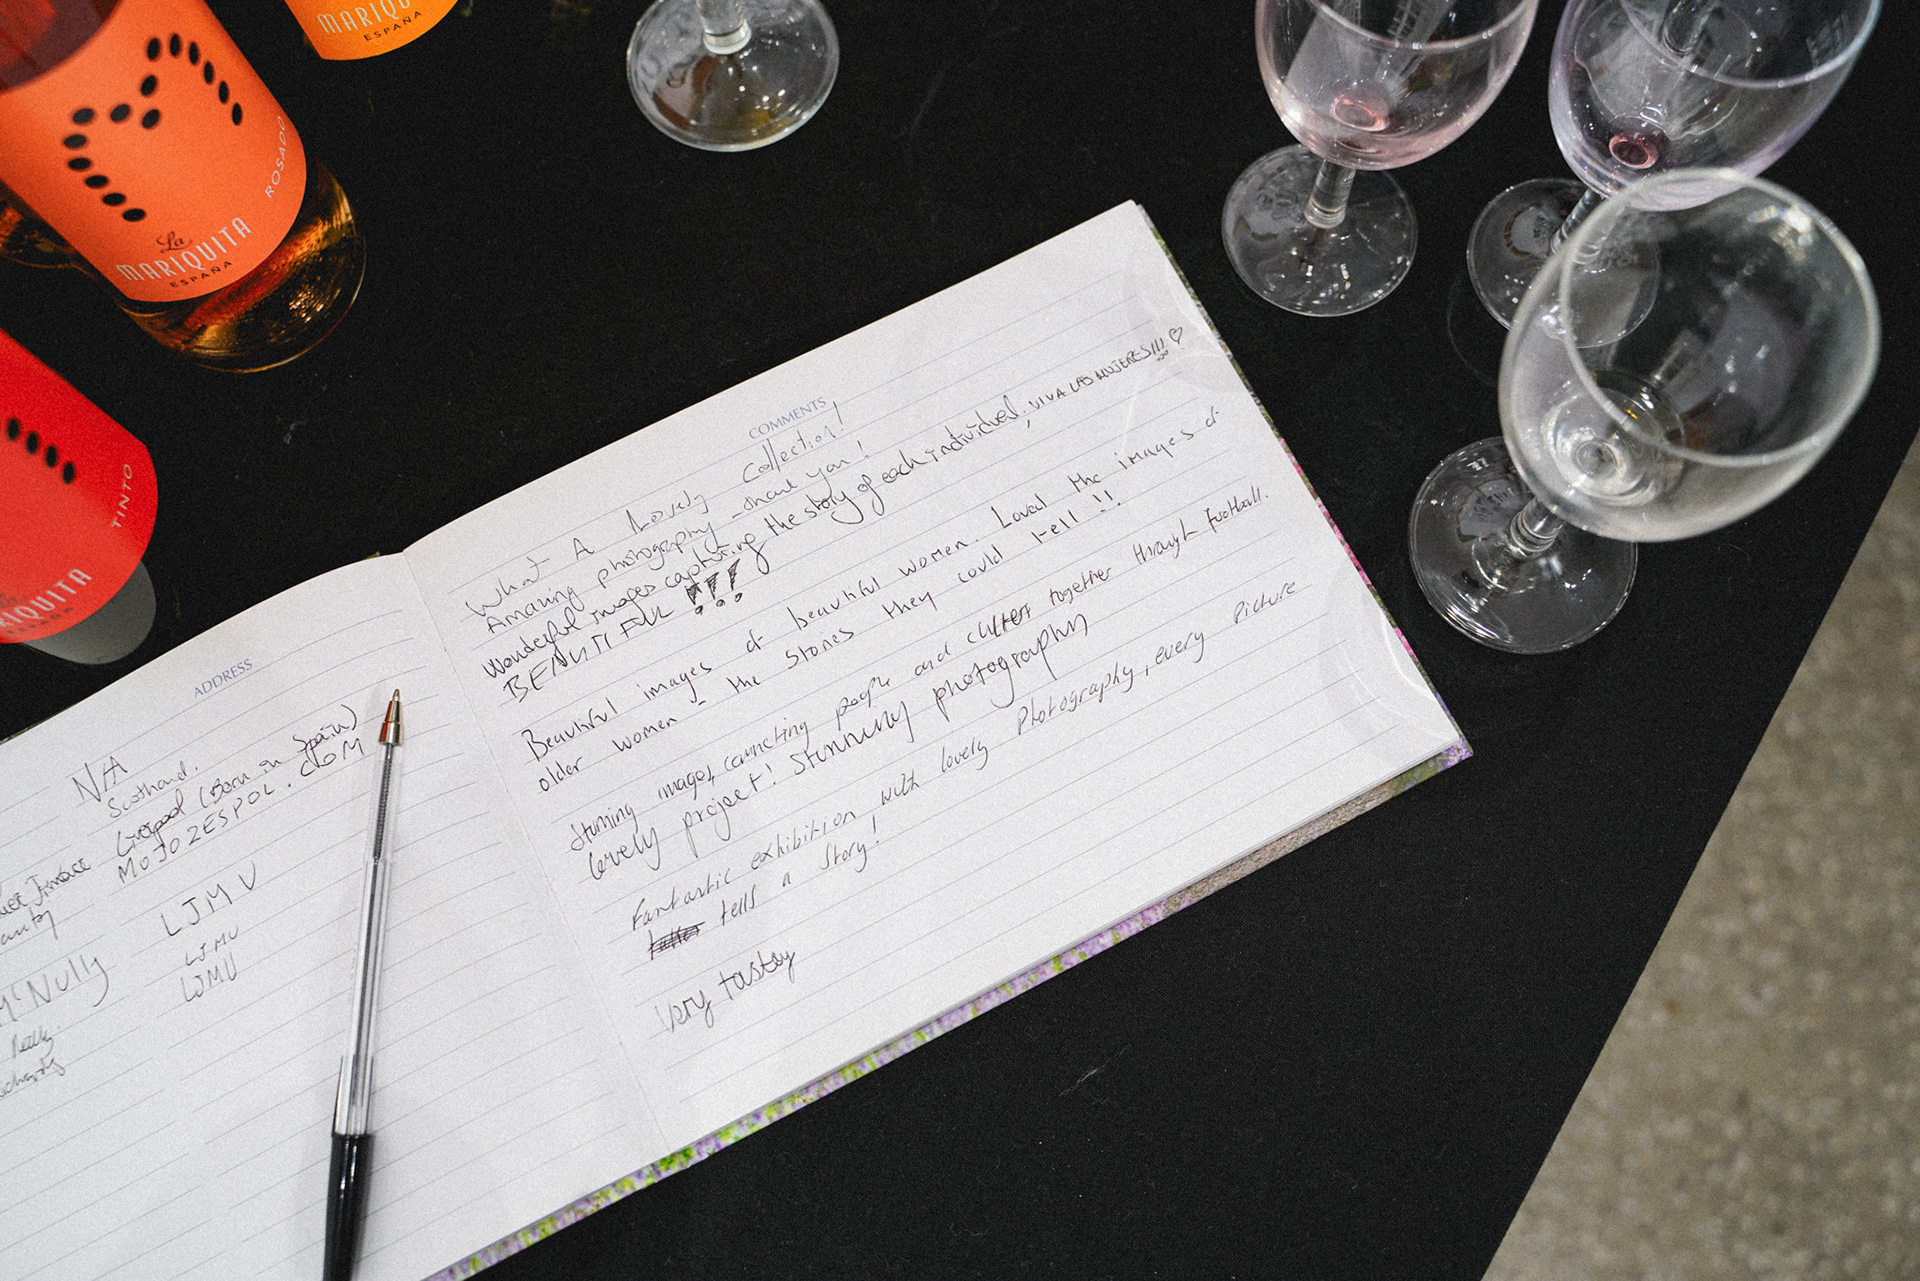 MARIQUITA
ESPAÑA
ROSADO
La
MARIQUITA
ESPAÑA
TINTO
RIQUITA
ESPAÑA
ADDRESS
N/A
Scotland.
Liverpool (Born in Spain)
MOJO2ESPOL.COM
LJMU
McNully
LJMU
LJMU
COMMENTS
What A Lovely Collection!
Amazing photography - thank you!
Wonderful images capturing the story of each individual, VIVA LAS MUJERES!!! ♡
BEAUTIFUL !!!
Beautiful images of beautiful women. Loved the images of
older women - the stories they could tell !!
Stunning images, connecting people and cultures together through football.
lovely project! Stunning photography
Fantastic exhibition with lovely Photography, every Picture
tells a Story!
Very tasty